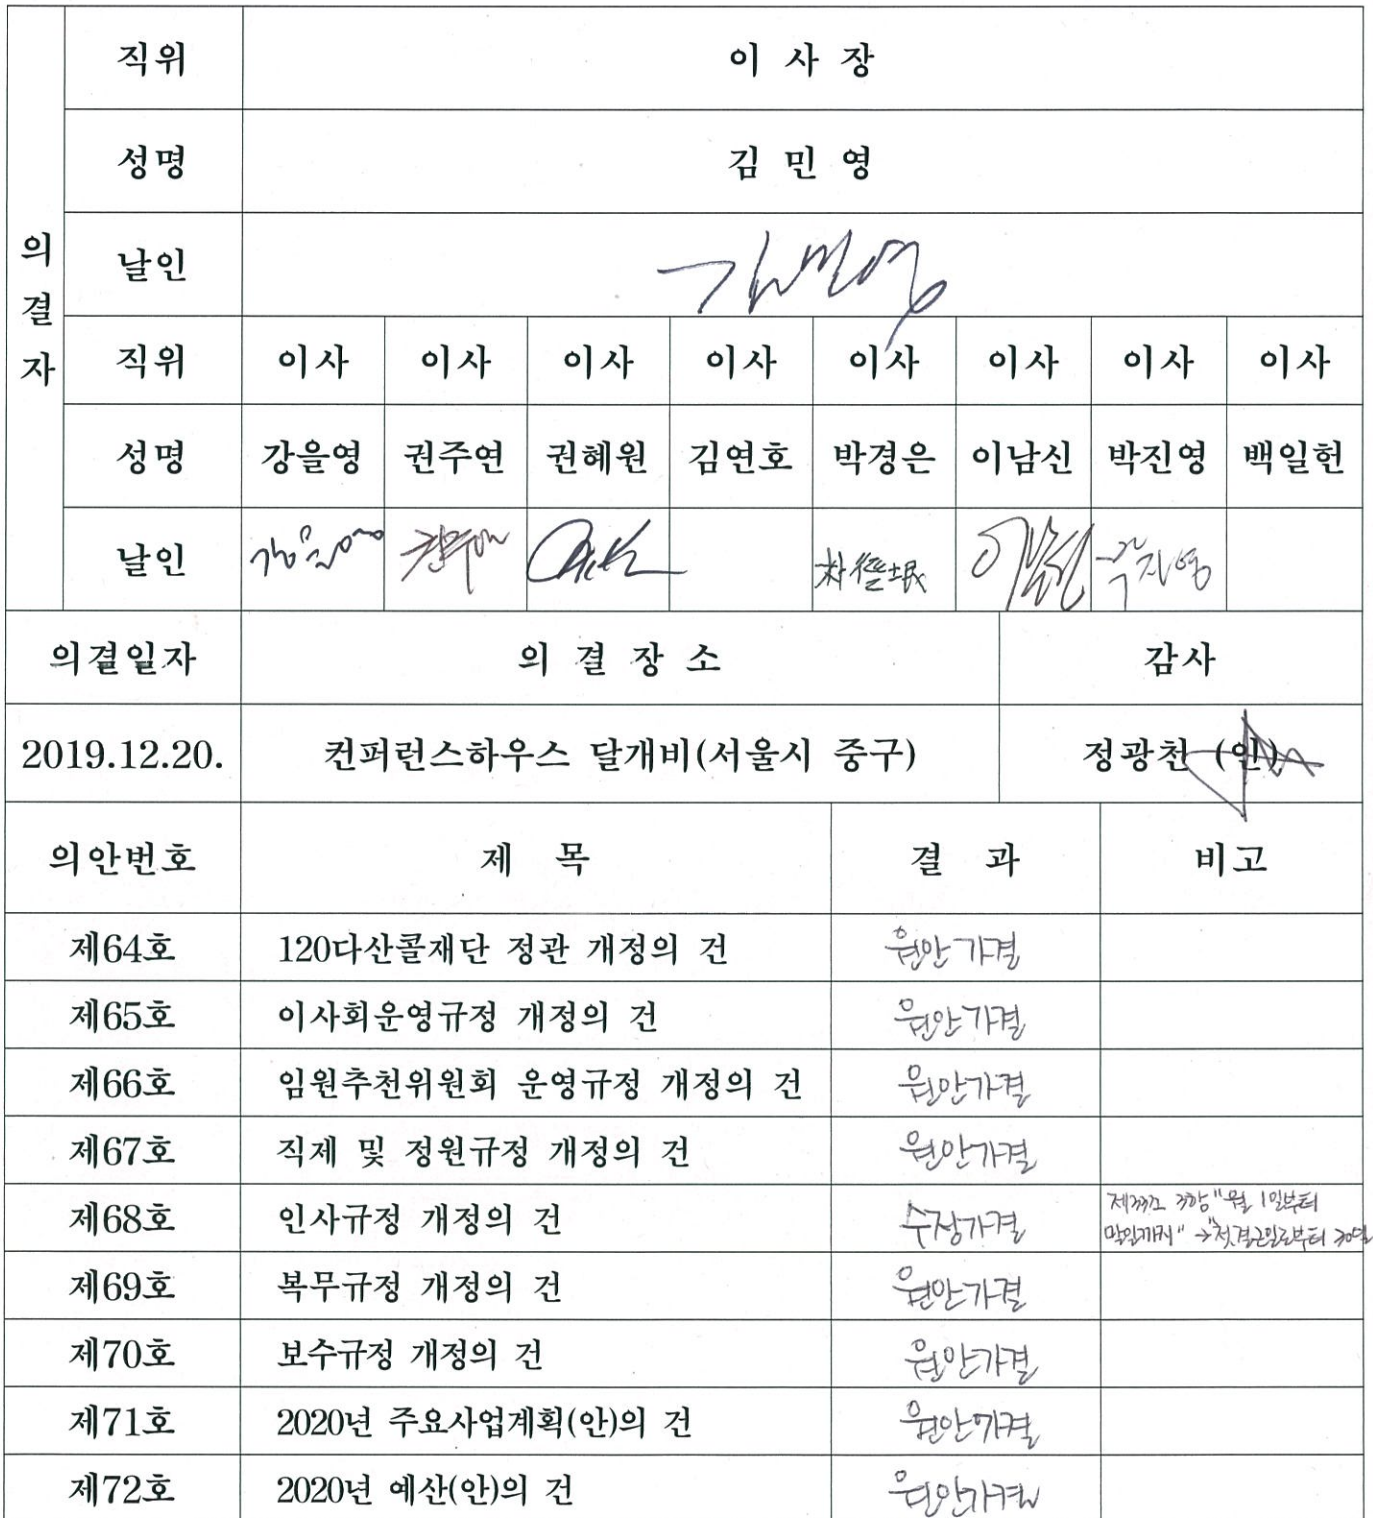 의결자
직위 이 사 장
성명 김 민 영
날인 김민영
직위 이사 이사 이사 이사 이사 이사 이사 이사
성명 강을영 권주연 권혜원 김연호 박경은 이남신 박진영 백일헌
날인
의결일자 의 결 장 소 감사
2019.12.20. 컨퍼런스하우스 달개비(서울시 중구) 정광천 (인)
의안번호 제 목 결 과 비고
제64호 120다산콜재단 정관 개정의 건 원안가결
제65호 이사회운영규정 개정의 건 원안가결
제66호 임원추천위원회 운영규정 개정의 건 원안가결
제67호 직제 및 정원규정 개정의 건 원안가결
제68호 인사규정 개정의 건 수정가결 3항 "월 1일부터
말일까지" → "첫 결근일로부터 30일
제69호 복무규정 개정의 건 원안가결
제70호 보수규정 개정의 건 원안가결
제71호 2020년 주요사업계획(안)의 건 원안가결
제72호 2020년 예산(안)의 건 원안가결